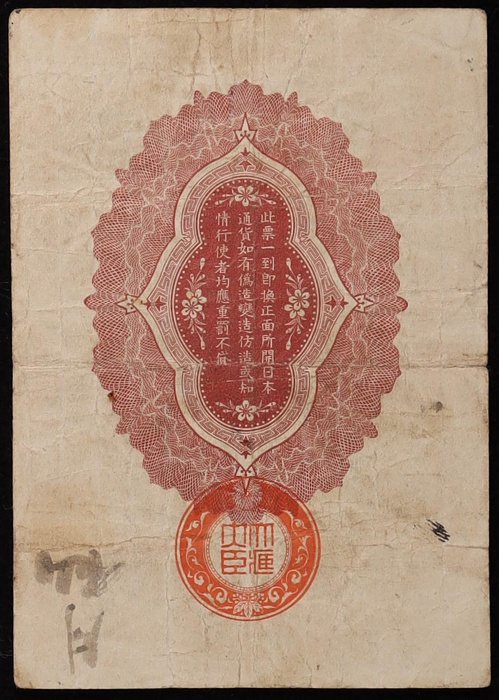 此票一到卽換正面所開日本
通貨如有僞造變造仿造或知
情行使者均應重罰不貸
大藏
大臣